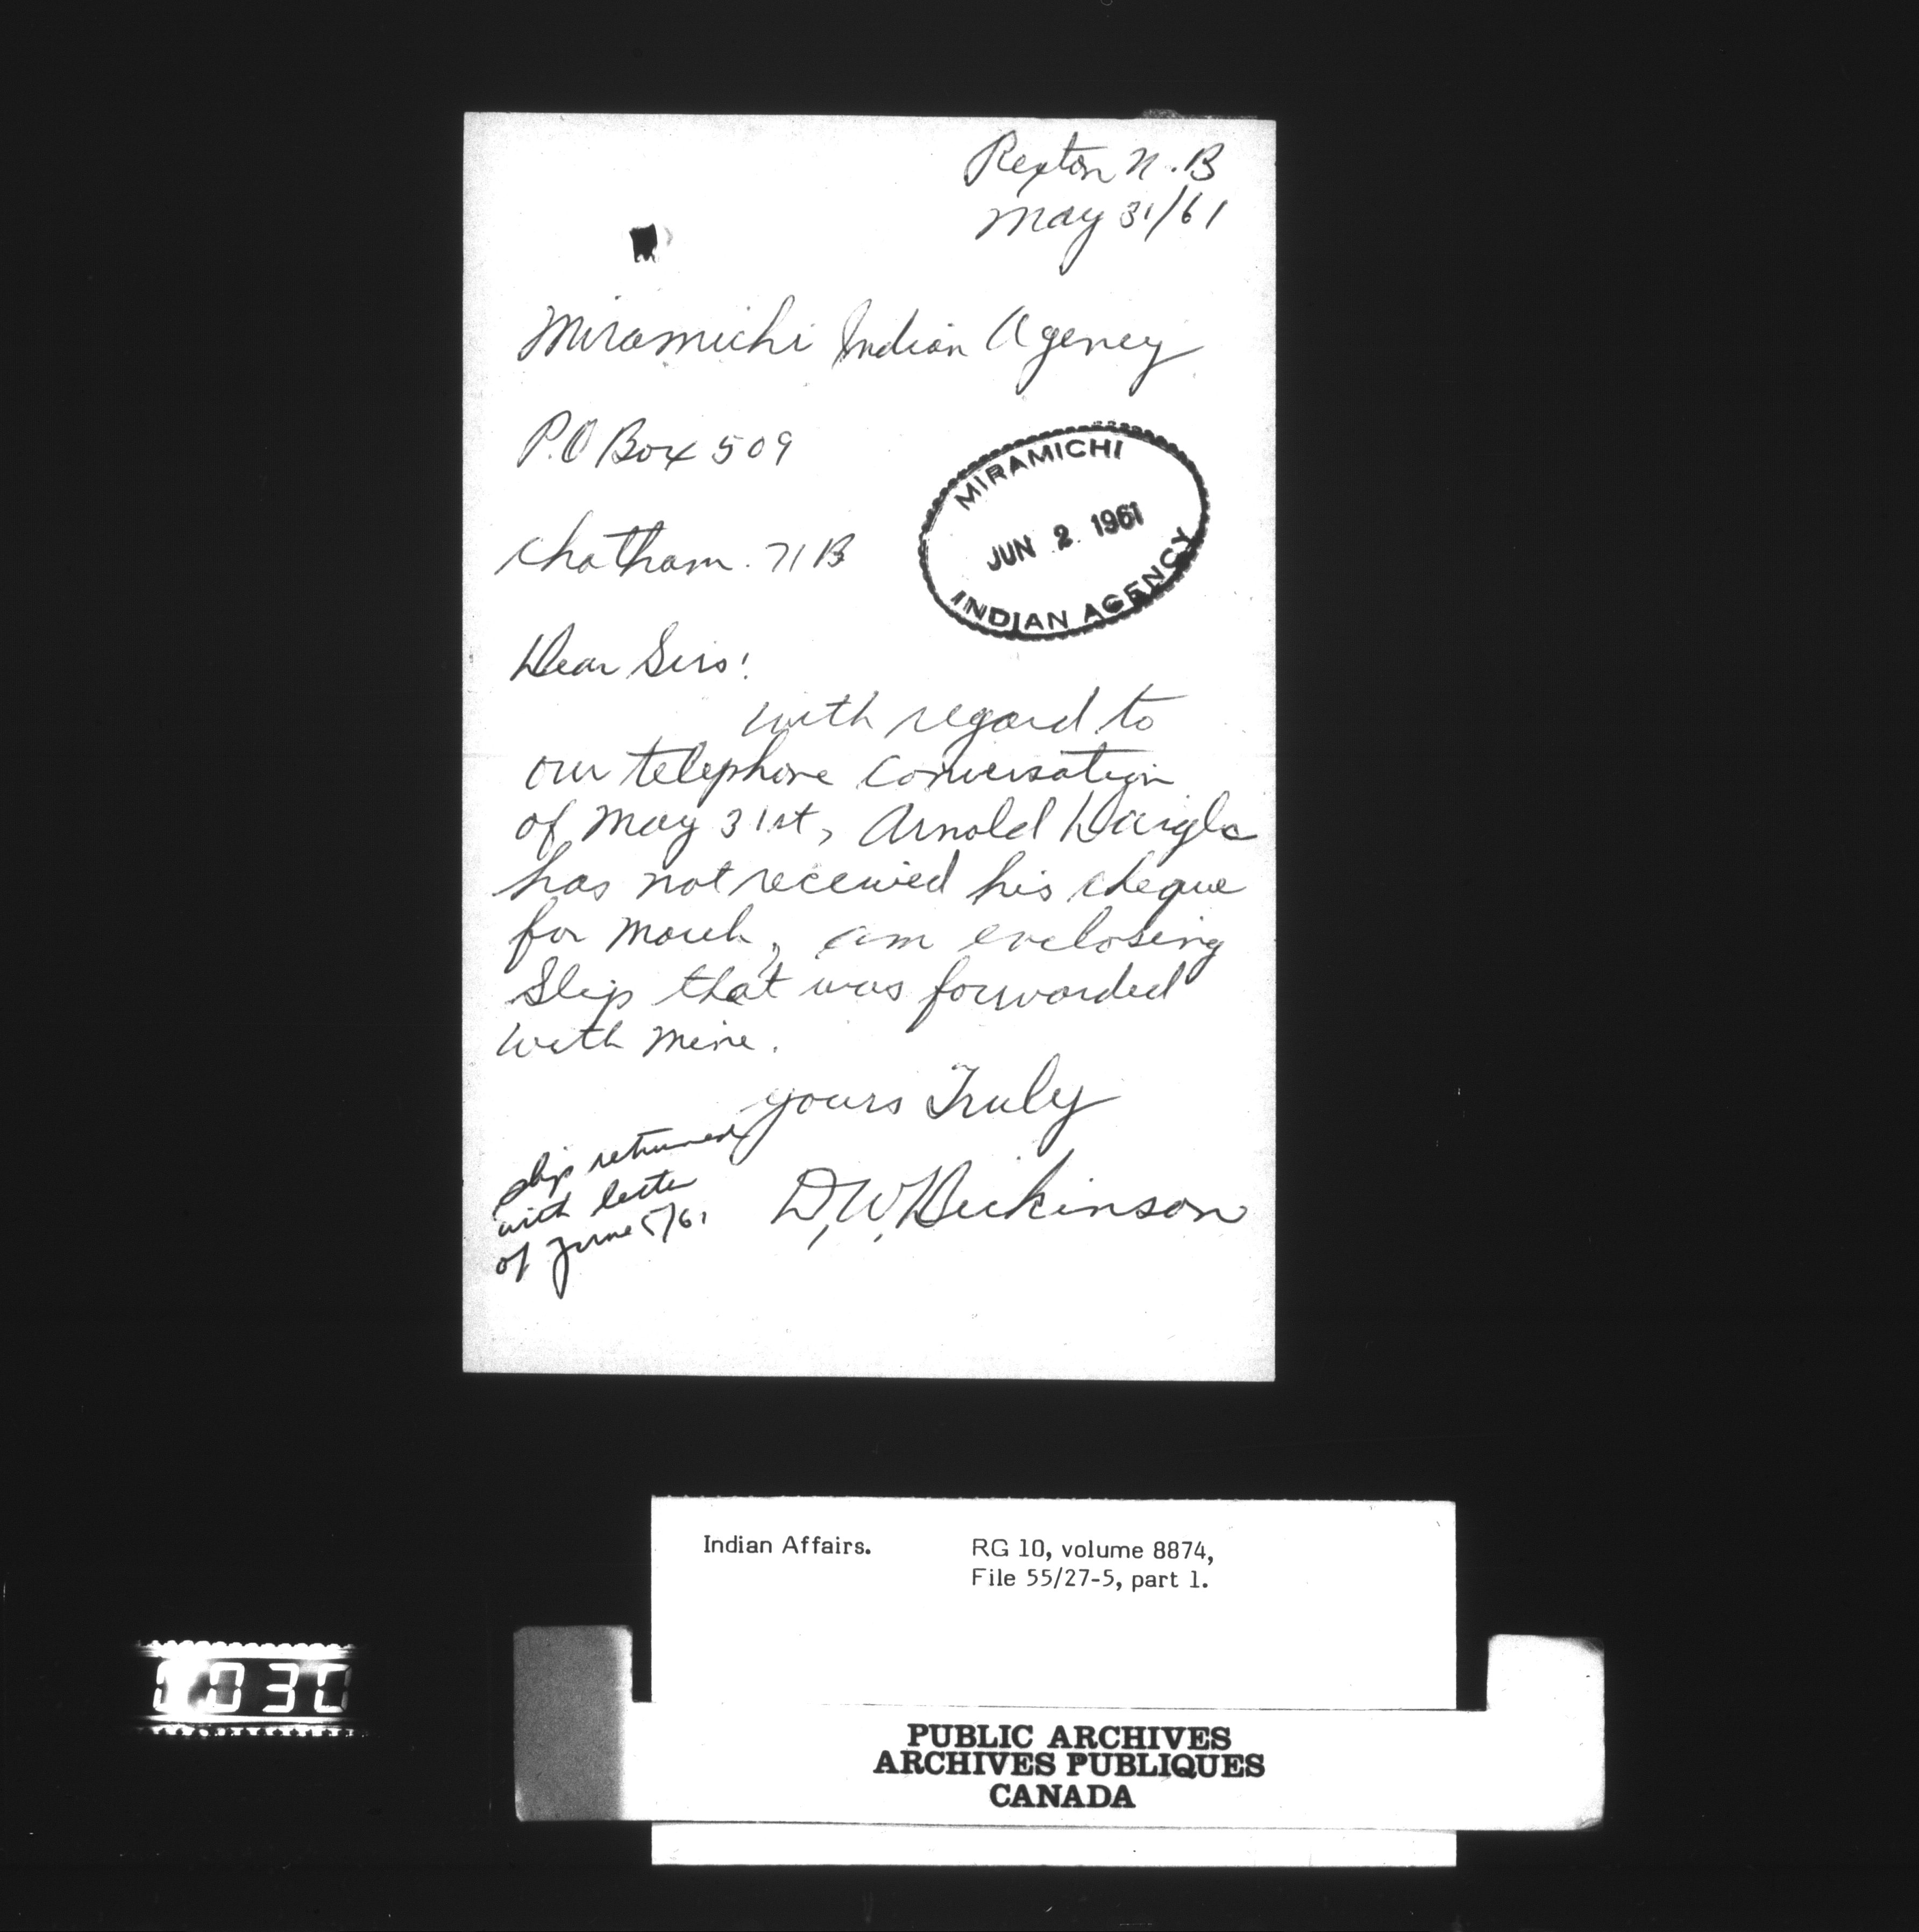 Rexton N.B
May 31/61
Miramichi Indian Agency
P.O Box 509
MIRAMICHI
JUN 2 1961
INDIAN AGENCY
Chatham. N B
Dear Sirs!
with regard to
our telephone conversation
of May 31st, Arnold
has not received his cheque
for March, am enclosing
Slip that was forwarded
with mine.
yours Truly
D.W. Dickinson
slip returned
with letter
of June 5/61
Indian Affairs.
RG 10, volume 8874,
File 55/27-5, part 1.
030
PUBLIC ARCHIVES
ARCHIVES PUBLIQUES
CANADA